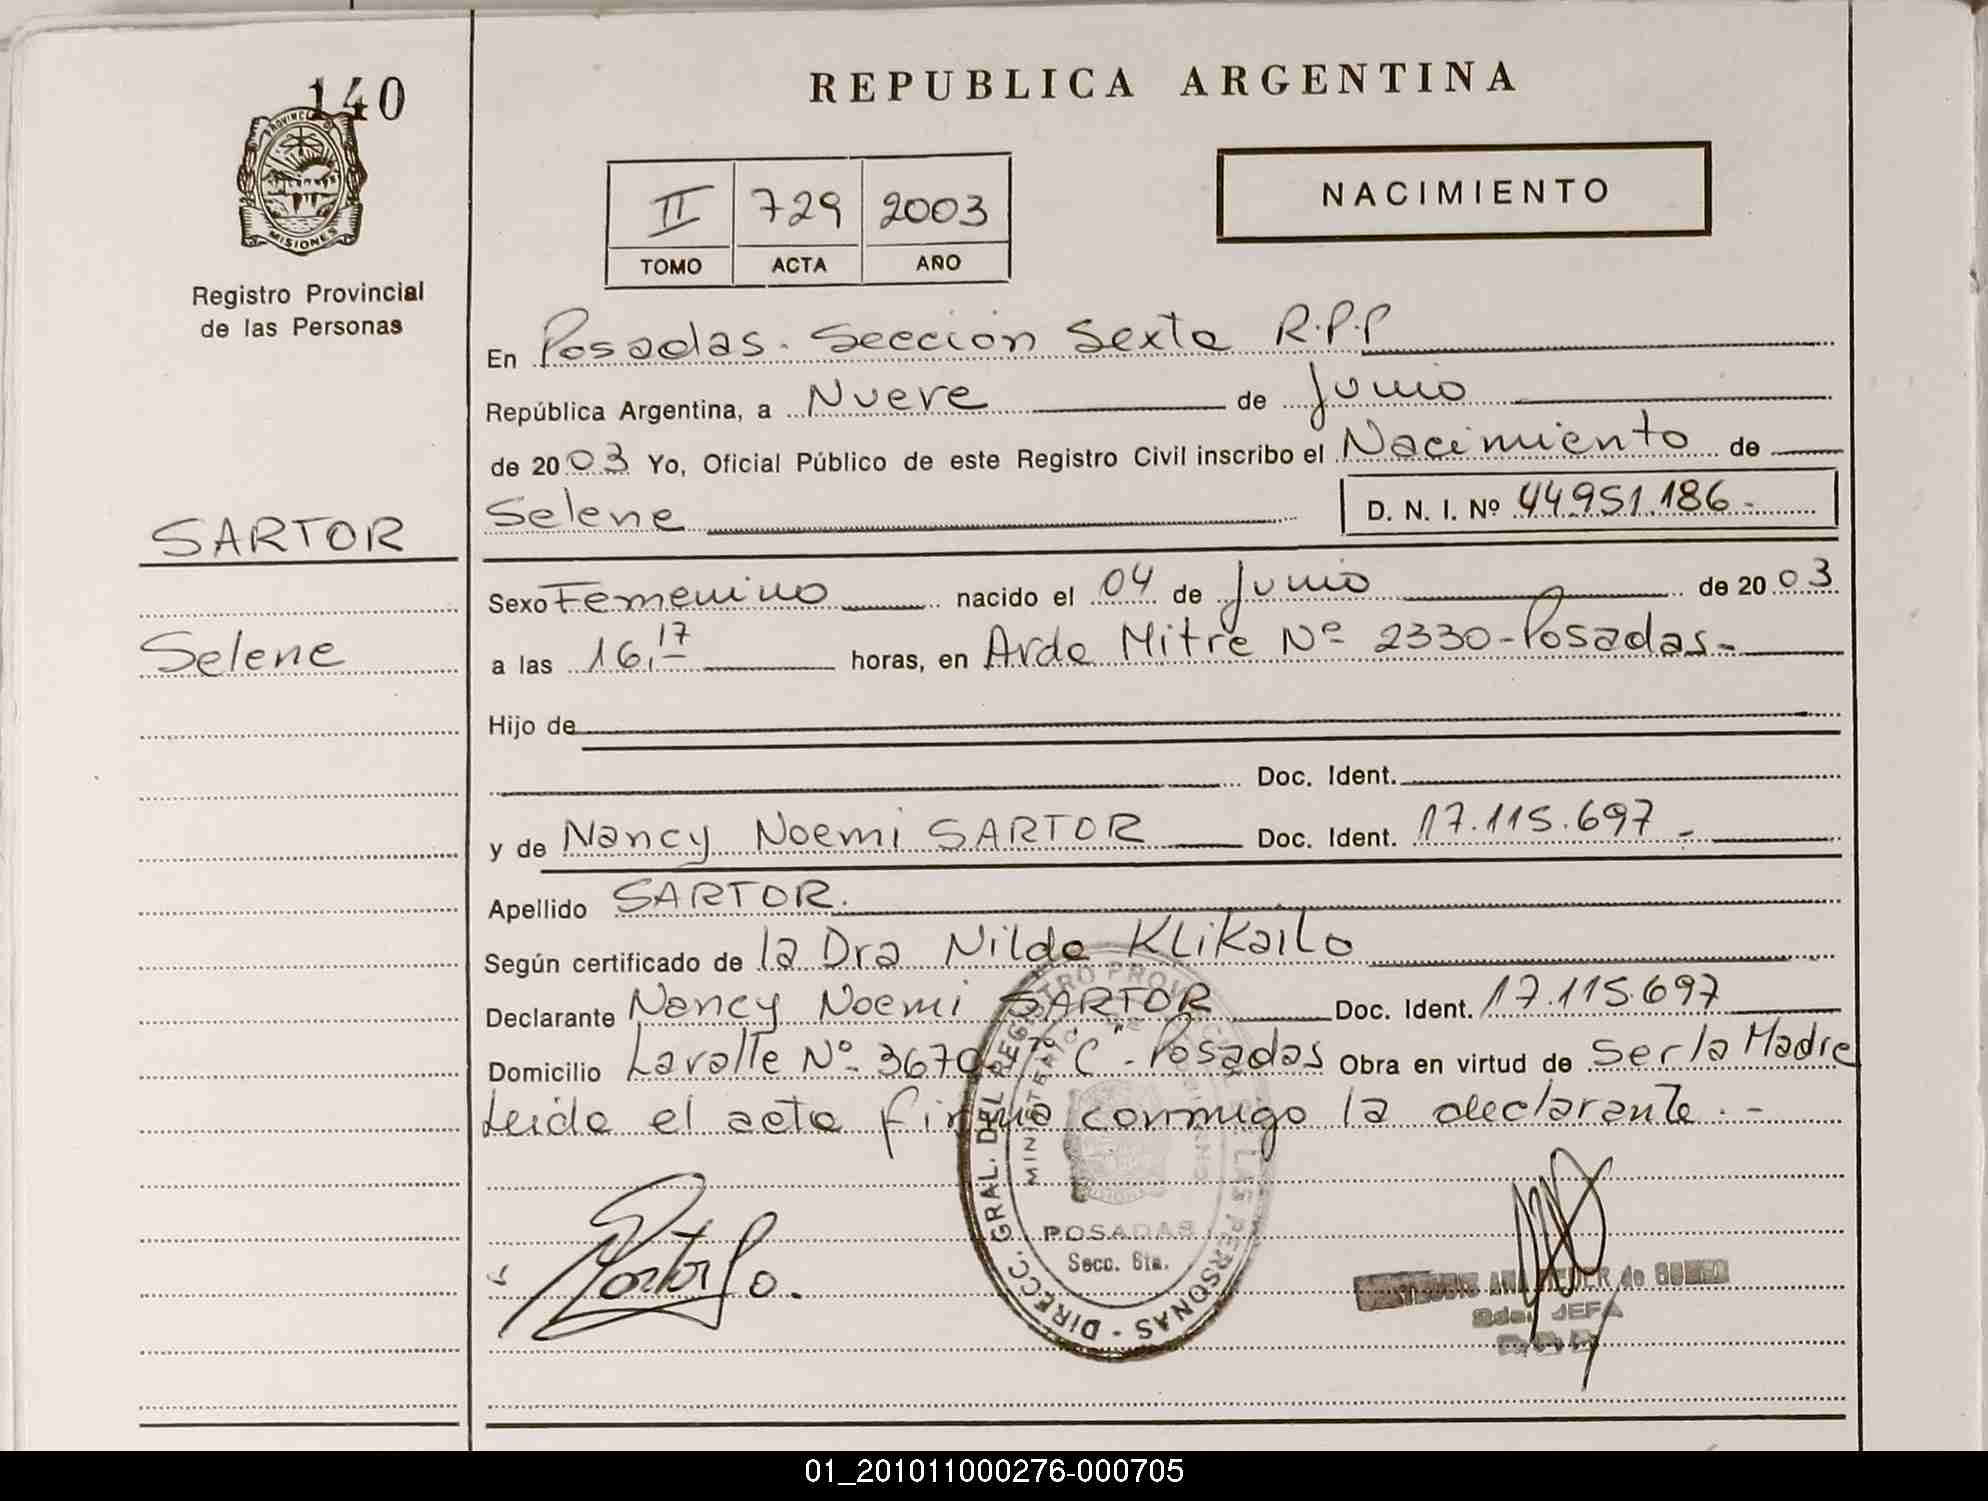 140
PROVINCIA D
MISIONES
Registro Provincial
de las Personas
SARTOR
Selene
REPUBLICA ARGENTINA
II 729 2003
TOMO ACTA AÑO
NACIMIENTO
En Posadas. Sección Sexta R.P.P
República Argentina, a Nueve de Junio
de 2003 Yo, Oficial Público de este Registro Civil inscribo el Nacimiento de
Selene D. N. I. Nº 44.951.186.-
Sexo Femenino nacido el 04 de Junio de 2003
a las 16,17 horas, en Avda Mitre Nº 2330-Posadas.-
Hijo de
Doc. Ident.
y de Nancy Noemi SARTOR Doc. Ident. 17.115.697.-
Apellido SARTOR.
Según certificado de la Dra Nilda KLiKailo
Declarante Nancy Noemi SARTOR Doc. Ident. 17.115.697
Domicilio Lavalle Nº 3670-7º "C"-Posadas Obra en virtud de Ser la Madre
Leida el acta firma conmigo la declarante.-
DIRECC. GRAL. DEL REGISTRO PROVINCIAL DE LAS PERSONAS -
MINISTERIO DE GOBIERNO
POSADAS
Secc. 6ta.
ANA de
JEFA
01_201011000276-000705